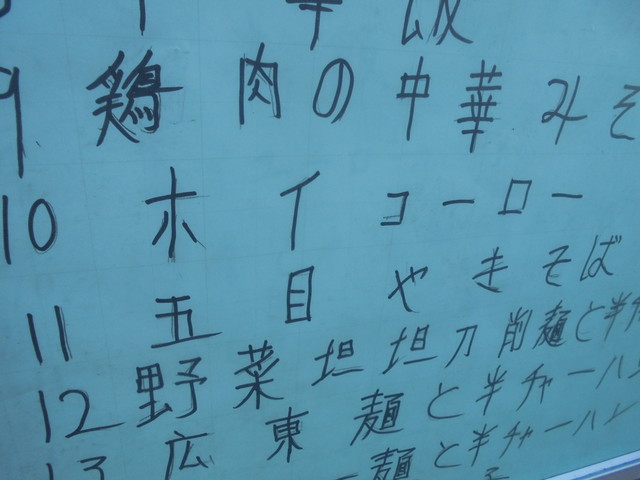 9 鶏肉の中華みそ
10 ホイコーロー
11 五目やきそば
12 野菜坦坦刀削麺と半チャ
13 広東麺と半チャーハン
麺と半チャーハン